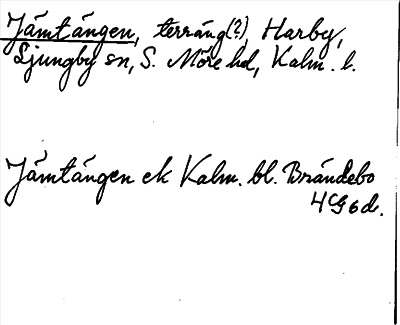 Jämtängen, terräng(?), Harby,
Ljungby sn, S. Möre hd, Kalm. l.
Jämtängen ek Kalm. bl. Brändebo
4 Cg 6 d.